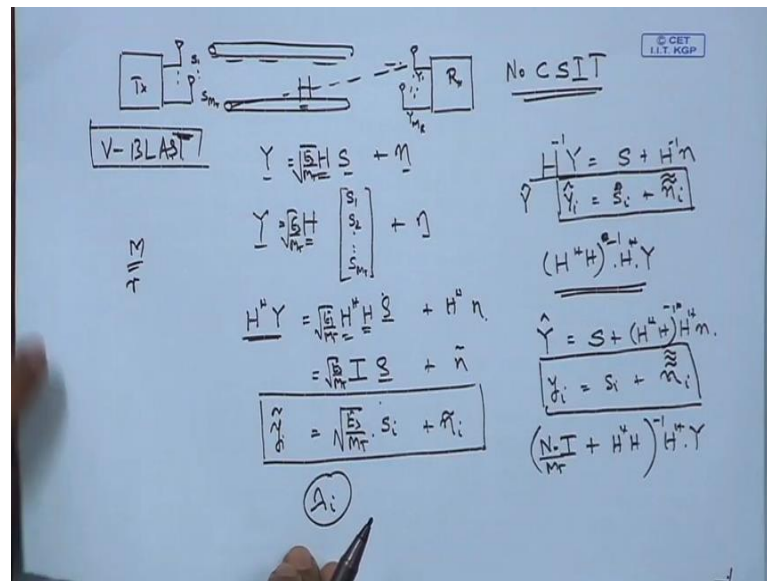 © CET
I.I.T. KGP
Tx
S₁
S_{M_T}
H
Y₁
Y_{M_R}
Rx
No CSIT
V-BLAST
Y = √(Es/M_T) H S + n
Y = √(Es/M_T) H [S₁ S₂ ⋮ S_{M_T}] + n
M_T
H^H Y = √(Es/M_T) H^H H S + H^H n.
= √(Es/M_T) I S + ñ
ỹ_i = √(Es/M_T) . S_i + ñ_i
λ_i
H^{-1} Y = S + H^{-1} n
Ŷ
Ŷ_i = S_i + ñ_i
(H^H H)^{-1} . H^H Y
Ŷ = S + (H^H H)^{-1} H^H n.
y_i = S_i + ñ_i
(N₀ I / M_T + H^H H)^{-1} H^H . Y